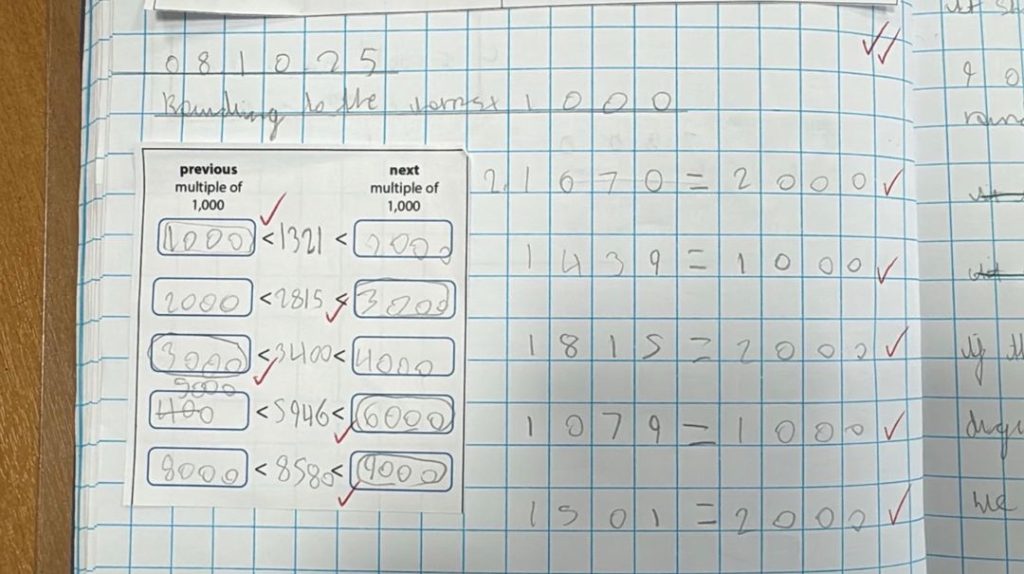 081025
Rounding to the nornest 1000
previous multiple of 1,000
next multiple of 1,000
1000 < 1321 < 2000
2000 < 2815 < 3000
3000 < 3400 < 4000
5000
400 < 5946 < 6000
8000 < 8580 < 9000
2. 1670 = 2000
1439 = 1000
1815 = 2000
1079 = 1000
1501 = 2000
9 0
if th
we